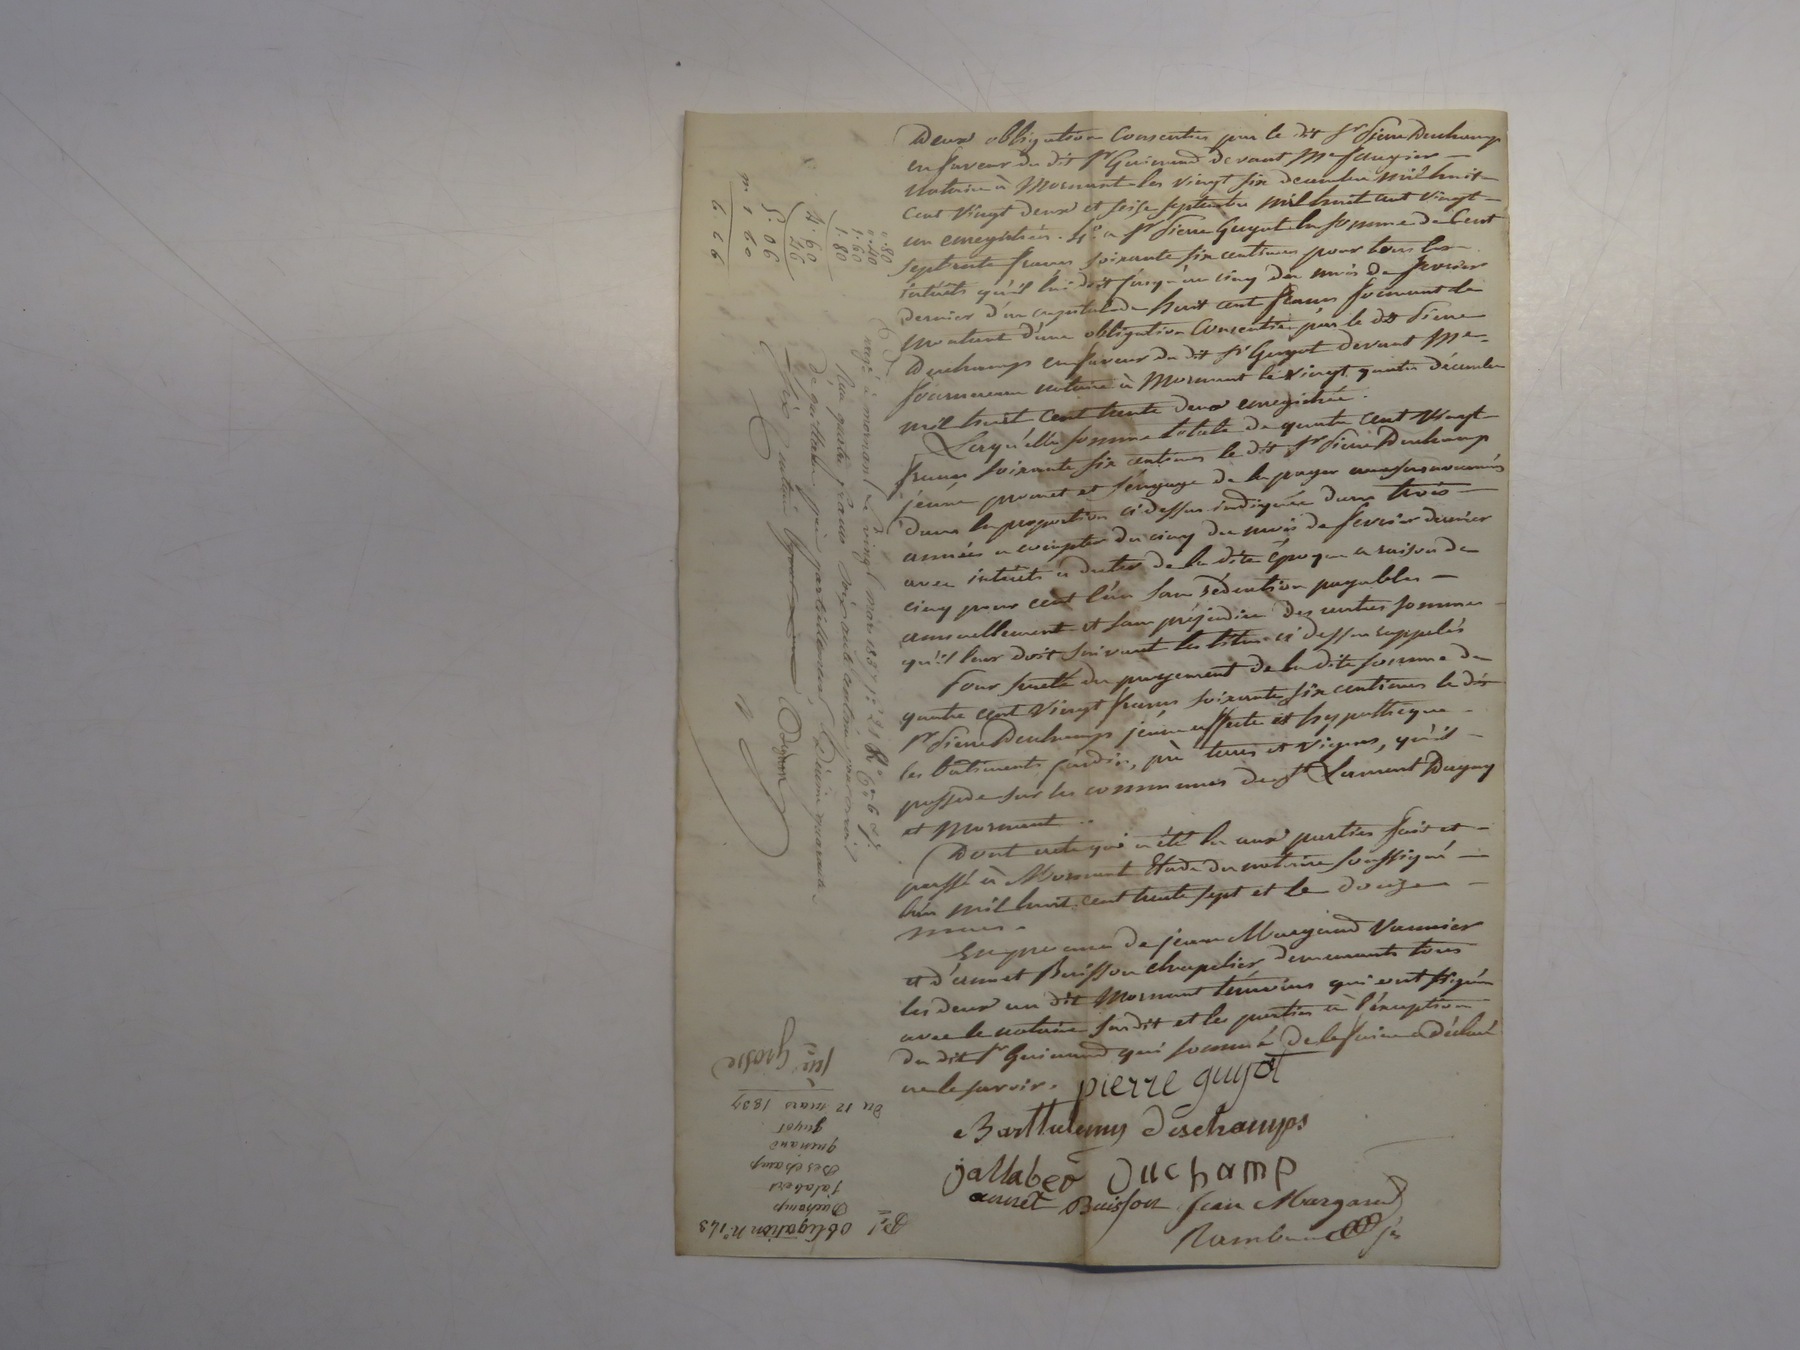 Deux obligation Consenties par le dit Sr Pierre Duchamp
en faveur du dit Sr Guinand devant Me
Notaire à Mornant les vingt six decembre mil huit
cent vingt deux et seise septembre mil huit cent vingt
un enregistrées. 4º a Sr Pierre Guyot la somme de Cent
septente francs soixante six centimes pour tous les
intérêts qu'il lui doit jusqu'au cinq du mois de fevrier
dernier d'un capital de huit cent francs formant le
montant d'une obligation Consentie par le dit Pierre
Deuchamps en faveur du dit Sr Guyot devant Me
notaire à Mornant le vingt quatre décembre
mil huit cent trente deux enregistrée.
Laquelle somme totale de quatre cent vingt
francs soixante six centimes le dit Sr Pierre Deuchamp
jeune promet et s'engage de la payer
dans la proportion ci dessus indiquée dans trois
années a compter du cinq du mois de fevrier dernier
avec intérêts à dater de la dite époque a raison de
cinq pour cent l'an sans rédention payables
annuellement et sans préjudice des autres sommes
qu'il leur doit suivant les titres ci dessus rappelés
Pour sureté du payement de la dite somme de
quatre cent vingt francs soixante six centimes le dit
Sr Pierre Deuchamps jeune affecte et hypothèque
les bâtiments jardin, pré terres et vignes, qu'il
possède sur les communes de St Laurent Dagny
et Mornant.
Dont acte qui a été lu aux parties fait et
passé à Mornant Etude du notaire soussigné
l'an mil huit cent trente sept et le douze
mars.
En presence de jean Margand Vannier
et d'annet Buisson chapelier demeurants tous
les deux au dit Mornant témoins qui ont signé
avec le notaire susdit et les parties à l'exception
du dit Sr Guinand qui sommé de le faire a déclaré
ne le savoir.
pierre guyot
Barthelemy deschamps
jallabeo Duchamp
annet Buisson jean Margand
à mornant le vingt mars 1837
Reçu quatre francs
notaire
0.80
0.40
1.60
1.80
4.60
46
5.06
1.60
6.66
obligation nº 148
Duchamp
jalabert
Deschamp
guinand
guyot
du 12 mars 1837
1ere Grosse